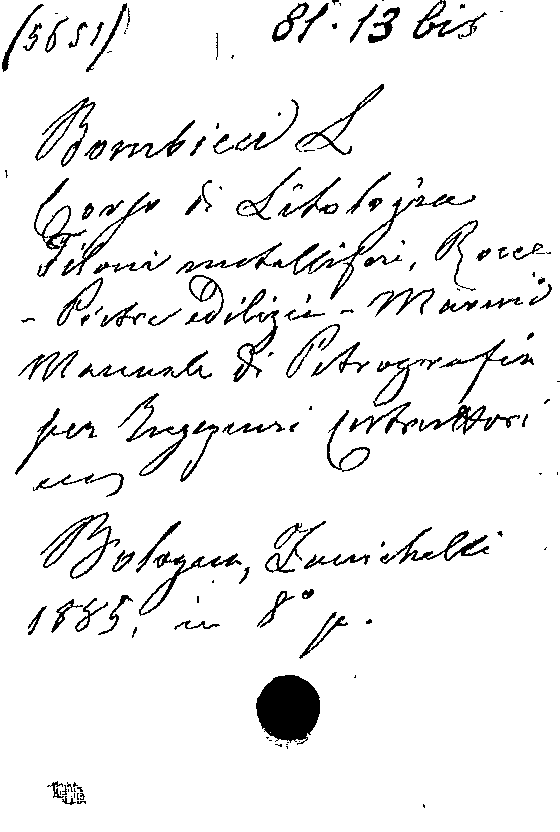 (5651) 81.13 bis
Bombicci L
Corso di Litologia
Filoni metalliferi, Rocce
- Pietre edilizie - Marmi
Manuale di Petrografia
per Ingegneri Costruttori
ecc
Bologna, Zanichelli
1885, in 8° p.